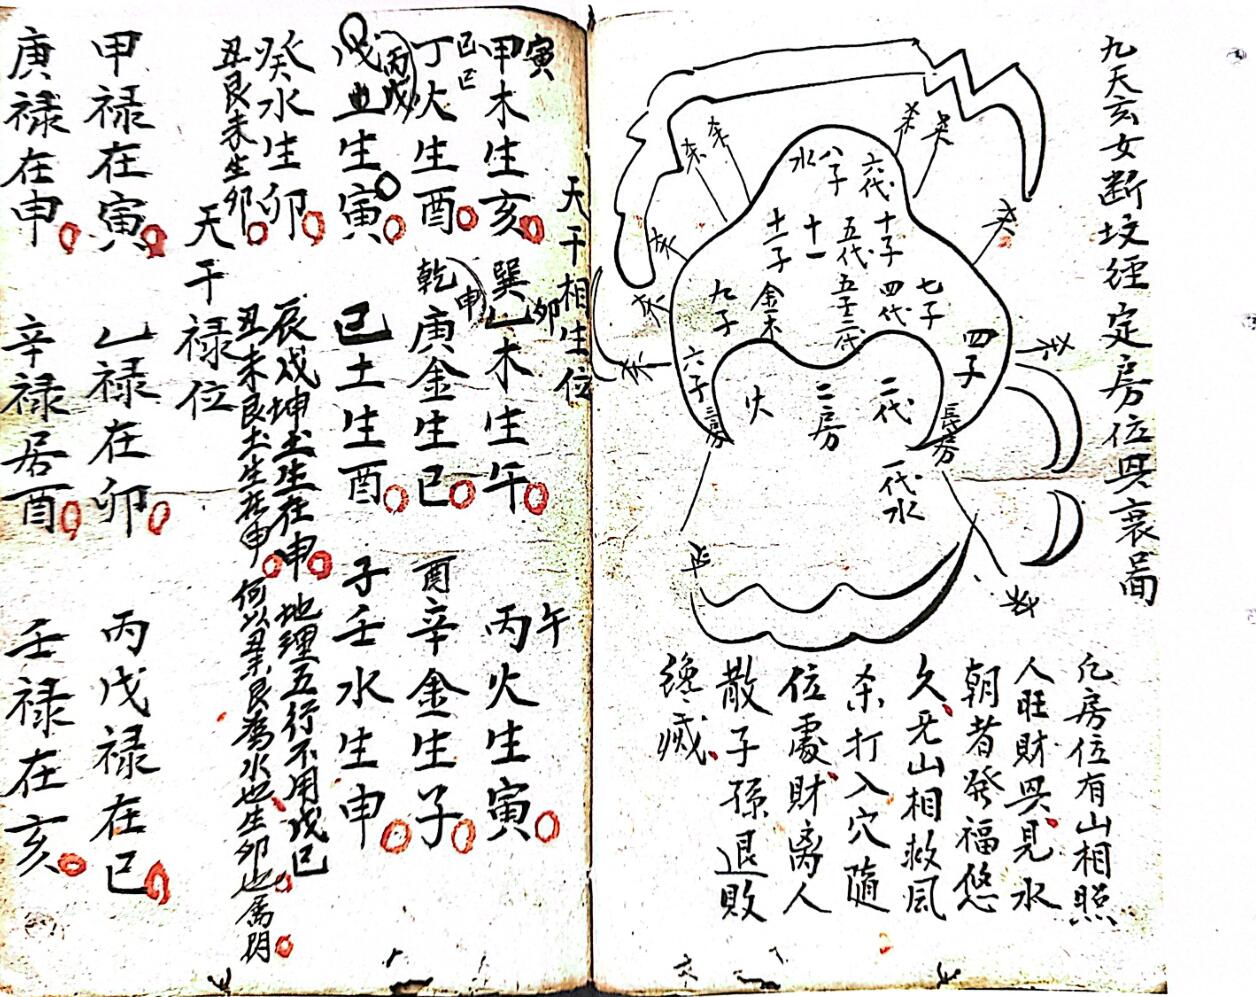 九天玄女断坟经定房位兴衰啚
杀
杀
杀
杀
杀
杀
杀
杀
杀
水
八子
六代
十子
十一
十二子
五代
四代
七子
九子
金木
五子
三代
四子
六子
三房
火
二房
二代
長房
一代水
凡房位有山相照
人旺財兴見水
朝者發福悠
久无山相救风
杀打入穴随
位處財离人
散子孫退敗
絶滅
天干相生位
寅
甲木生亥
巽乙木生午
卯
午
丙火生寅
巳
丁火生酉
乾庚金生巳
申
酉辛金生子
丙戊
戊土生寅
己土生酉
子壬水生申
癸水生卯
丑艮未生卯
辰戌坤土生在申
地理五行不用戊己
丑未艮土生在申
何以丑未艮為水也生卯也属阴
天干禄位
甲禄在寅
乙禄在卯
丙戊禄在巳
庚禄在申
辛禄居酉
壬禄在亥